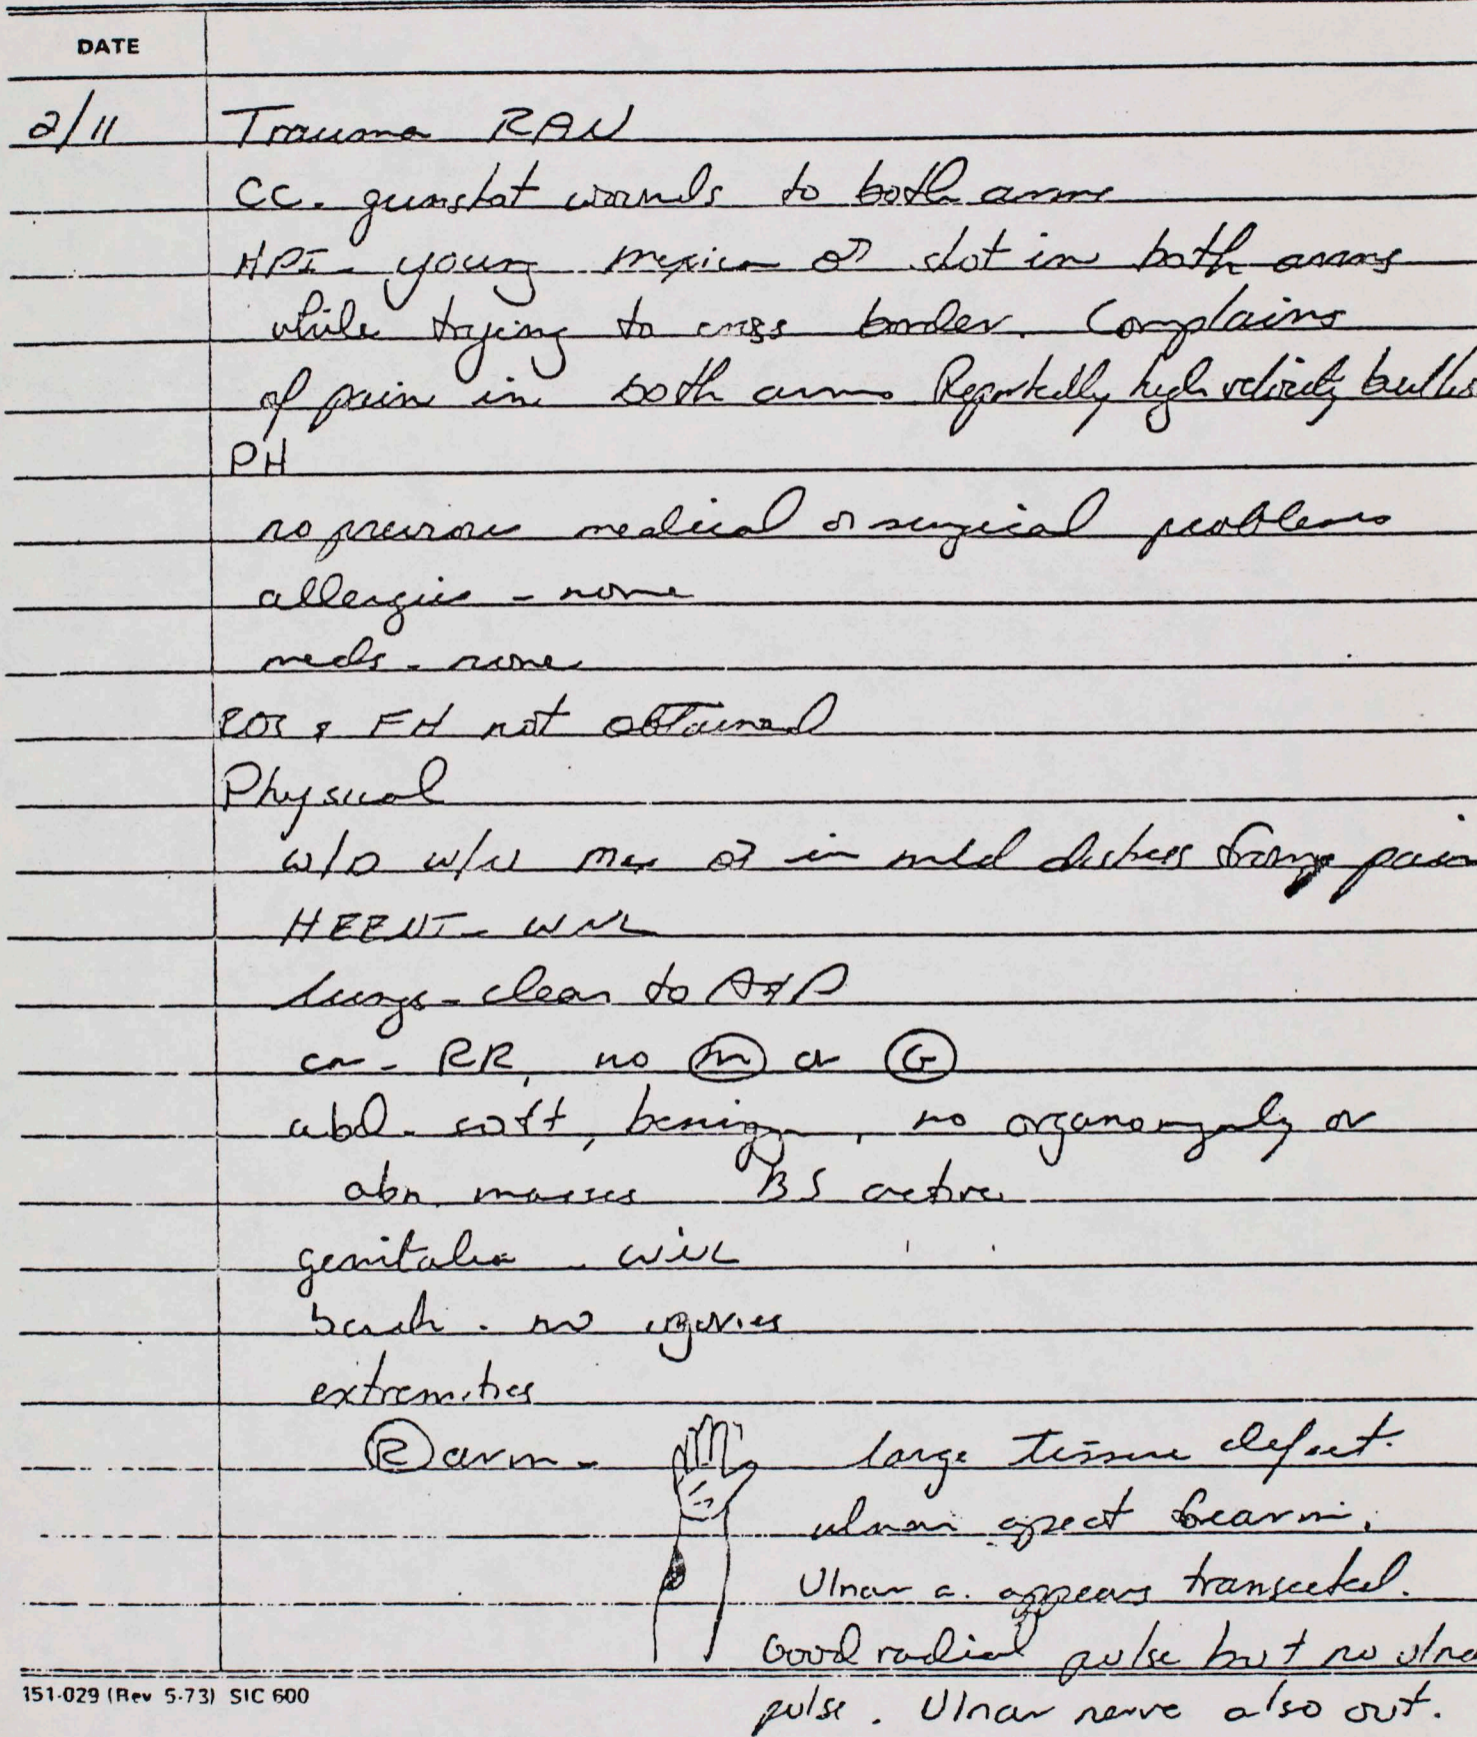 DATE
2/11 Trauma RAN
CC. gunshot wounds to both arms
HPI - young mexican ♂ shot in both arms
while trying to cross border. Complains
of pain in both arms Reportedly high velocity bullets
PH
no previous medical or surgical problems
allergies - none
meds - none
ROS & FH not obtained
Physical
w/D w/N Mex ♂ in mild distress from pain
HEENT - WNL
lungs - clear to A&P
cor - RR, no M or G
abd - soft, benign, no organomegaly or
abn masses BS active
genitalia - WNL
back - no injuries
extremities
R arm - large tissue defect
ulnar aspect forearm.
Ulnar a. appears transected.
Good radial pulse but no ulna
pulse. Ulnar nerve also out.
151-029 (Rev 5-73) SIC 600